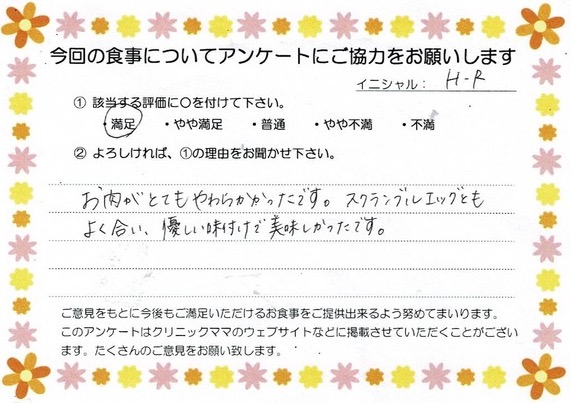 今回の食事についてアンケートにご協力をお願いします
イニシャル： H-R
① 該当する評価に○を付けて下さい。
・満足 ・やや満足 ・普通 ・やや不満 ・不満
② よろしければ、①の理由をお聞かせ下さい。
お肉がとてもやわらかかったです。スクランブルエッグとも
よく合い、優しい味付けで美味しかったです。
ご意見をもとに今後もご満足いただけるお食事をご提供出来るよう努めてまいります。
このアンケートはクリニックママのウェブサイトなどに掲載させていただくことがござい
ます。たくさんのご意見をお願い致します。